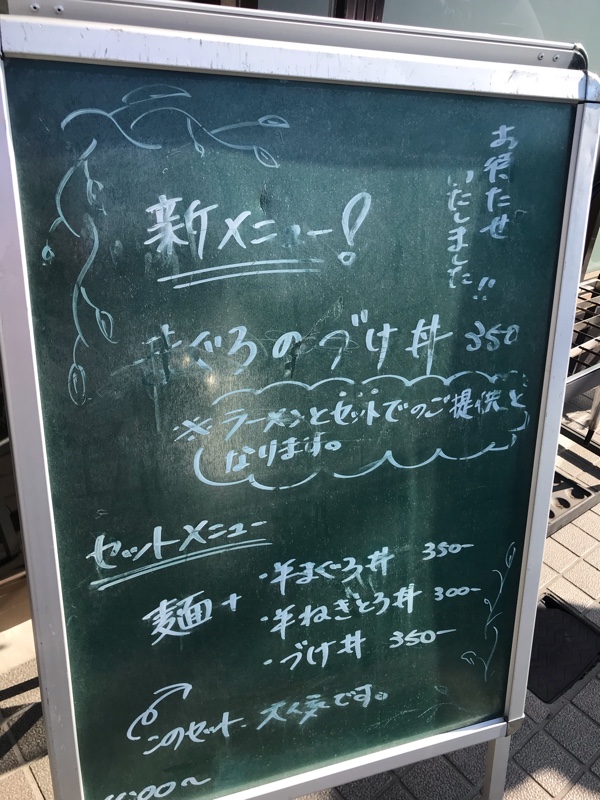 お待たせ
いたしました!!
新メニュー!
まぐろのづけ丼 350
※ラーメンとセットでのご提供と
なります。
セットメニュー
麺+
・半まぐろ丼 350-
・半ねぎとろ丼 300-
・づけ丼 350-
このセット 大人気です。
:00〜